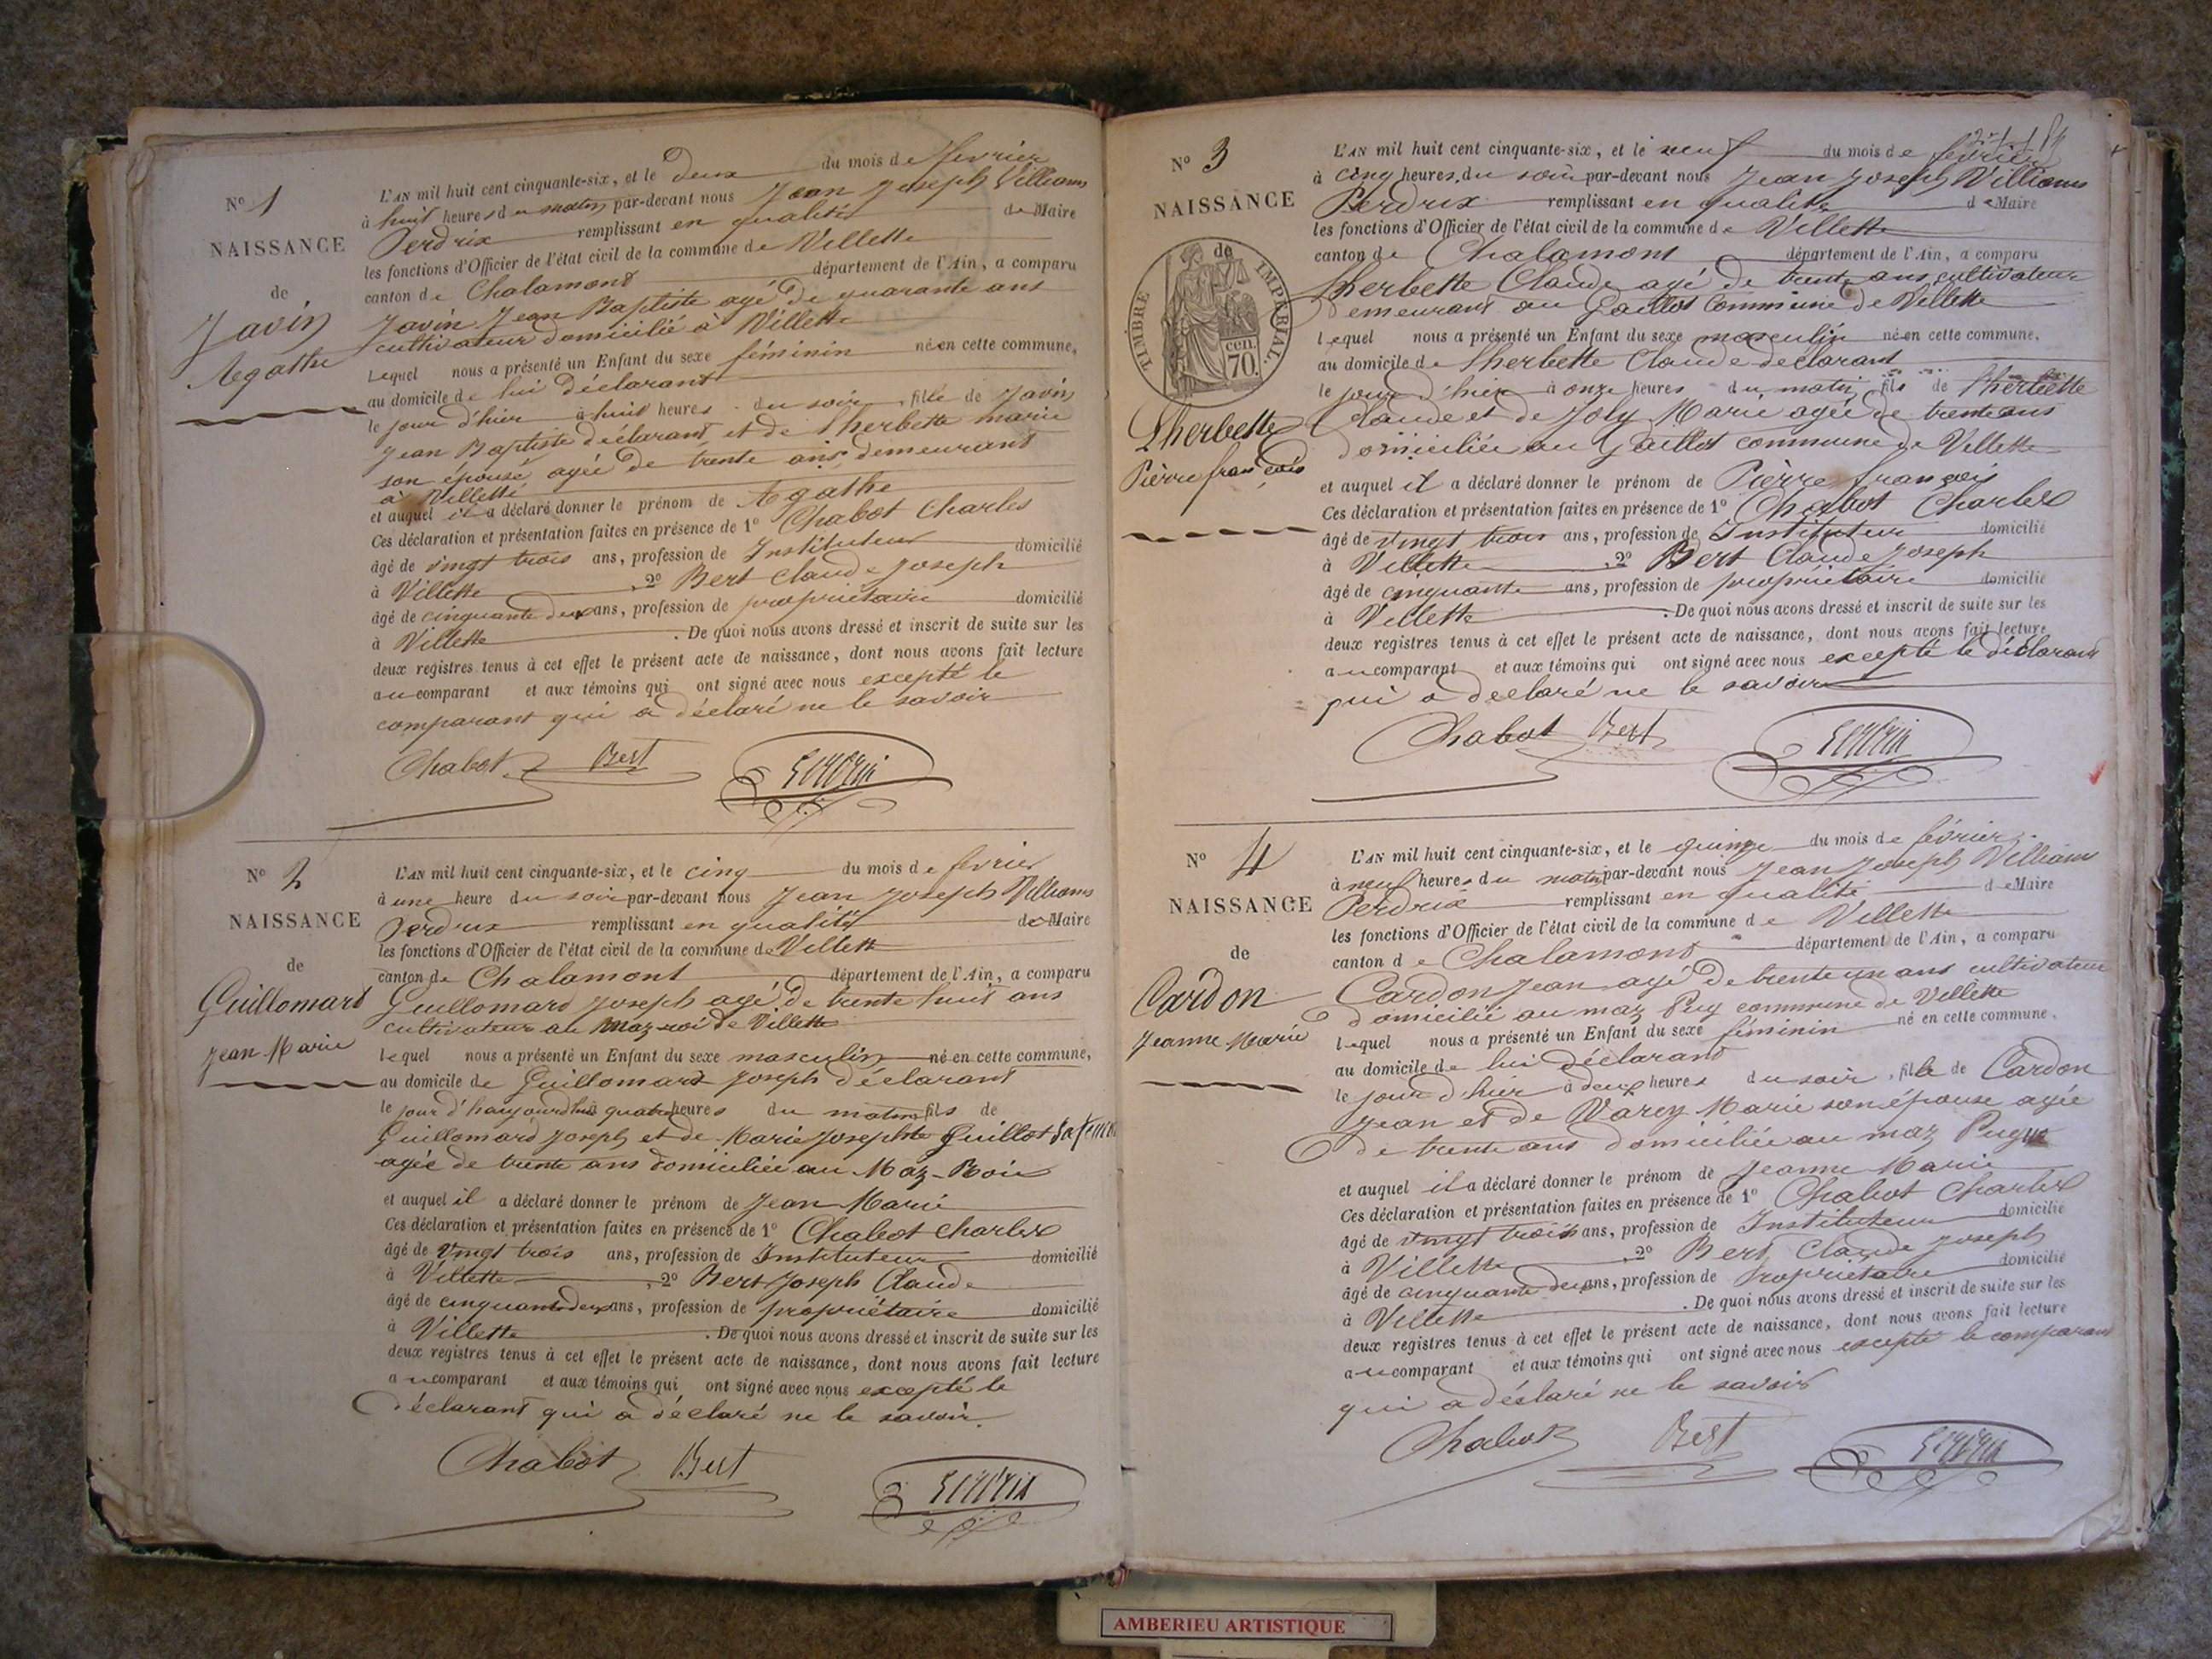 N° 1
NAISSANCE
de
Javin
Agathe
L'AN mil huit cent cinquante-six, et le deux du mois de fevrier
à huit heures du matin par-devant nous Jean Joseph Villiams
Perdrix remplissant en qualité de Maire
les fonctions d'Officier de l'état civil de la commune de Villette
canton de Chalamont département de l'Ain, a comparu
Javin Jean Baptiste agé de quarante ans
cultivateur domicilié à Villette
Lequel nous a présenté un Enfant du sexe féminin né en cette commune,
au domicile de lui déclarant
le jour d'hier à huit heures du soir, fille de Javin
Jean Baptiste déclarant et de Lherbette marie
son épouse agée de trente ans demeurant
à Villette
et auquel il a déclaré donner le prénom de Agathe
Ces déclaration et présentation faites en présence de 1° Chabot Charles
âgé de vingt trois ans, profession de Instituteur domicilié
à Villette , 2° Bert Claude Joseph
âgé de cinquante deux ans, profession de propriétaire domicilié
à Villette . De quoi nous avons dressé et inscrit de suite sur les
deux registres tenus à cet effet le présent acte de naissance, dont nous avons fait lecture
au comparant et aux témoins qui ont signé avec nous excepté le
comparant qui a déclaré ne le savoir
Chabot Bert Perdrix
N° 2
NAISSANCE
de
Guillomard
Jean Marie
L'AN mil huit cent cinquante-six, et le cinq du mois de fevrier
à une heure du soir par-devant nous Jean Joseph Villiams
Perdrix remplissant en qualité de Maire
les fonctions d'Officier de l'état civil de la commune de Villette
canton de Chalamont département de l'Ain, a comparu
Guillomard Joseph agé de trente huit ans
cultivateur au Maz roi de Villette
lequel nous a présenté un Enfant du sexe masculin né en cette commune,
au domicile de Guillomard Joseph déclarant
le jour d'haujourdhui à quatre heures du matin fils de
Guillomard Joseph et de Marie Josephte Guillot sa femme
agée de trente ans domiciliée au Maz-Roi
et auquel il a déclaré donner le prénom de Jean Marie
Ces déclaration et présentation faites en présence de 1° Chabot Charles
âgé de vingt trois ans, profession de Instituteur domicilié
à Villette , 2° Bert Joseph Claude
âgé de cinquante deux ans, profession de propriétaire domicilié
à Villette . De quoi nous avons dressé et inscrit de suite sur les
deux registres tenus à cet effet le présent acte de naissance, dont nous avons fait lecture
au comparant et aux témoins qui ont signé avec nous excepté le
déclarant qui a déclaré ne le savoir.
Chabot Bert Perdrix
N° 3
NAISSANCE
de
TIMBRE IMPÉRIAL.
cen.
70.
Lherbette
Pièrre françois
L'AN mil huit cent cinquante-six, et le neuf du mois de février
à cinq heures du soir par-devant nous Jean Joseph Villiams
Perdrix remplissant en qualité de Maire
les fonctions d'Officier de l'état civil de la commune de Villette
canton de Chalamont département de l'Ain, a comparu
Lherbette Claude agé de trente ans cultivateur
demeurant au Gaillot commune de Villette
lequel nous a présenté un Enfant du sexe masculin né en cette commune,
au domicile de Lherbette Claude declarant
le jour d'hier à onze heures du matin, fils de Lherbette
Claude et de Joly Marie agée de trente ans
domiciliée au Gaillot commune de Villette
et auquel il a déclaré donner le prénom de Pièrre françois
Ces déclaration et présentation faites en présence de 1° Chabot Charles
âgé de vingt trois ans, profession de Instituteur domicilié
à Villette , 2° Bert Claude Joseph
âgé de cinquante ans, profession de propriétaire domicilié
à Villette . De quoi nous avons dressé et inscrit de suite sur les
deux registres tenus à cet effet le présent acte de naissance, dont nous avons fait lecture
au comparant et aux témoins qui ont signé avec nous excepté le déclarant
qui a declaré ne le savoir
Chabot Bert Perdrix
N° 4
NAISSANCE
de
Cardon
Jeanne Marie
L'AN mil huit cent cinquante-six, et le quinze du mois de février
à neuf heures du matin par-devant nous Jean Joseph Villiams
Perdrix remplissant en qualité de Maire
les fonctions d'Officier de l'état civil de la commune de Villette
canton de Chalamont département de l'Ain, a comparu
Cardon Jean agé de trente un ans cultivateur
domicilié au maz Puy commune de Villette
lequel nous a présenté un Enfant du sexe féminin né en cette commune,
au domicile de lui déclarant
le jour d'hier à deux heures du soir, fille de Cardon
Jean et de Varey Marie son épouse agée
de trente ans domiciliée au maz
et auquel il a déclaré donner le prénom de Jeanne Marie
Ces déclaration et présentation faites en présence de 1° Chabot Charles
âgé de vingt trois ans, profession de Instituteur domicilié
à Villette , 2° Bert Claude Joseph
âgé de cinquante deux ans, profession de Propriétaire domicilié
à Villette . De quoi nous avons dressé et inscrit de suite sur les
deux registres tenus à cet effet le présent acte de naissance, dont nous avons fait lecture
au comparant et aux témoins qui ont signé avec nous excepté le comparant
qui a déclaré ne le savoir
Chabot Bert Perdrix
AMBERIEU ARTISTIQUE